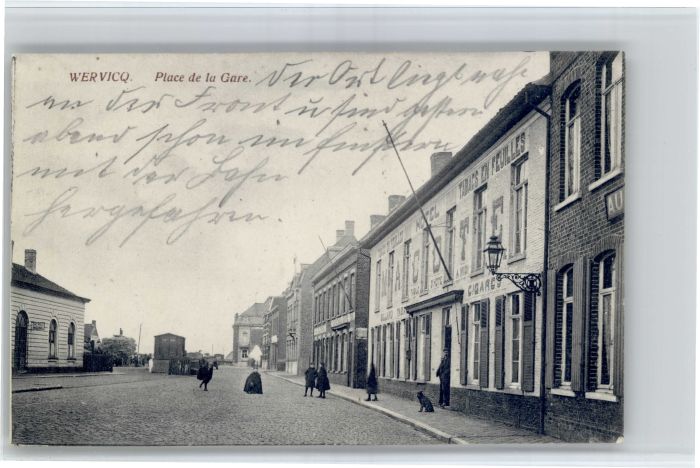 WERVICQ. Place de la Gare.
Der Ort liegt nahe
an der Front u sind gestern
abend schon im finstern
mit der Bahn
hergefahren.
TABACS EN FEUILLES
HOTEL
CIGARES
AU